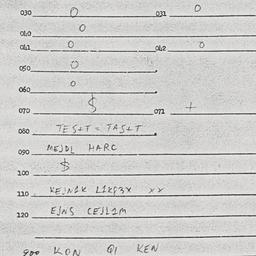 030 0 031 0
040 0
041 0 042 0
050 0
060 0
070 $ 071 +
080 TES+T = TAS+T
090 MEJDL HARC
100 $
110 KEJN1K L1KG3X XX
120 EJNS CEJL1M
900 KON GI KEN